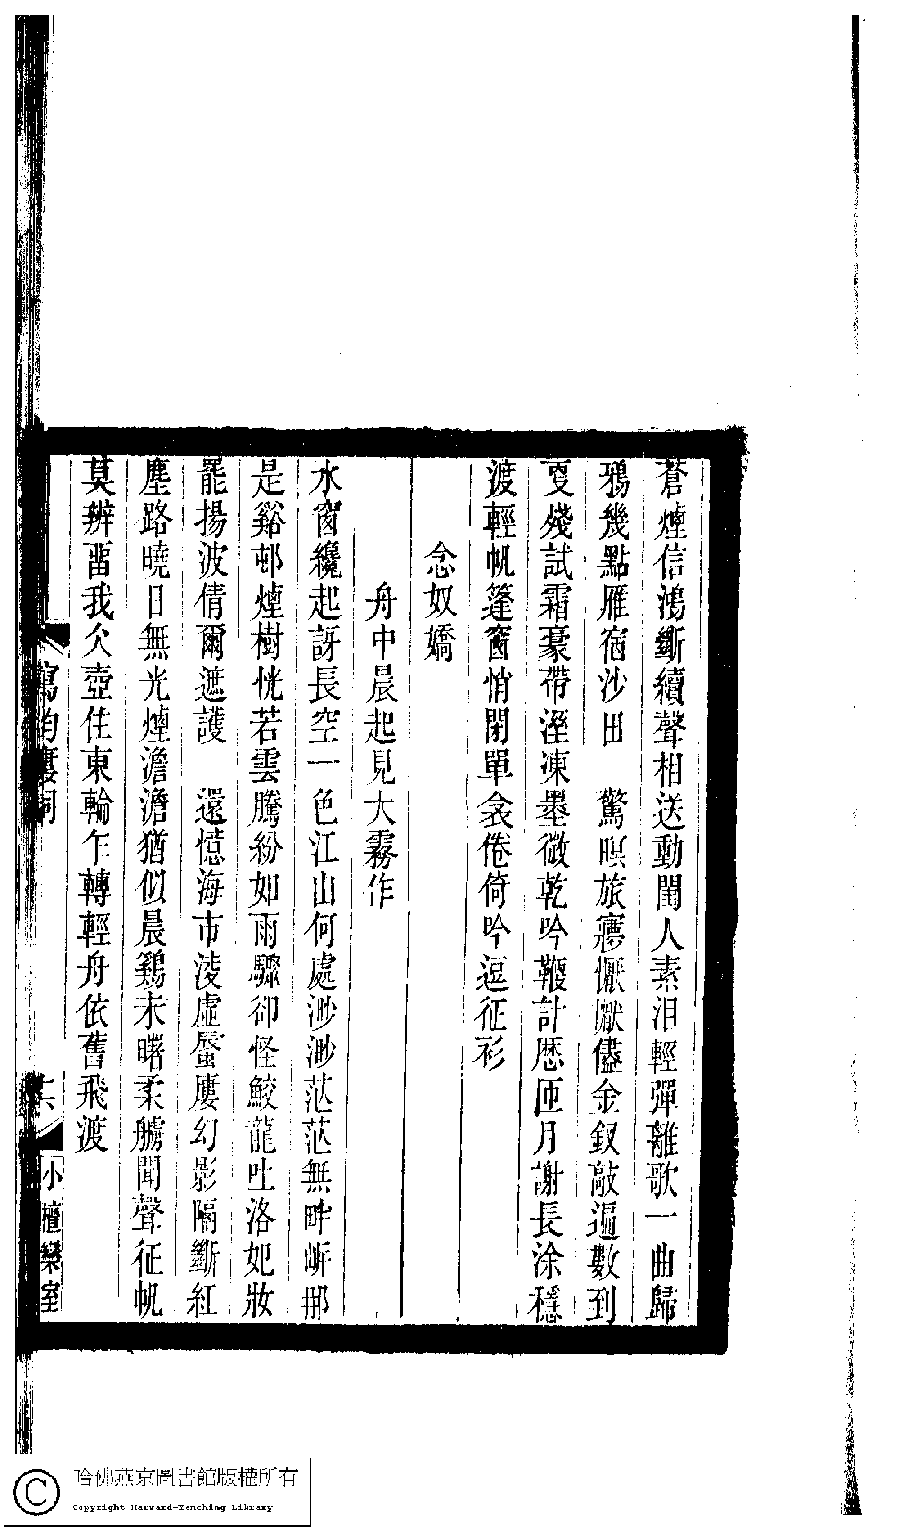 蒼煙信鴻斷續聲相送動閨人素淚輕彈離歌一曲歸
鴉幾點雁宿沙田　驚暝旅寢懨懨儘金釵敲遍數到
更殘試霜豪帶溼凍墨微乾吟鞭計歷匝月謝長涂穩
渡輕帆篷窗悄閉單衾倦倚吟逗征衫
念奴嬌
舟中晨起見大霧作
水窗纔起訝長空一色江山何處渺渺茫茫無畔岸那
是谿邨煙樹恍若雲騰紛如雨驟卻怪鮫龍吐洛妃妝
罷揚波倩爾遮護　還憶海市淩虛蜃廔幻影隔斷紅
塵路曉日無光煙澹澹猶似晨鷄未曙柔艣聞聲征帆
莫辨畱我仌壺住東輪乍轉輕舟依舊飛渡
寫韵廔詞
十六
小檀欒室
哈佛燕京圖書館版權所有
Copyright Harvard-Yenching Library